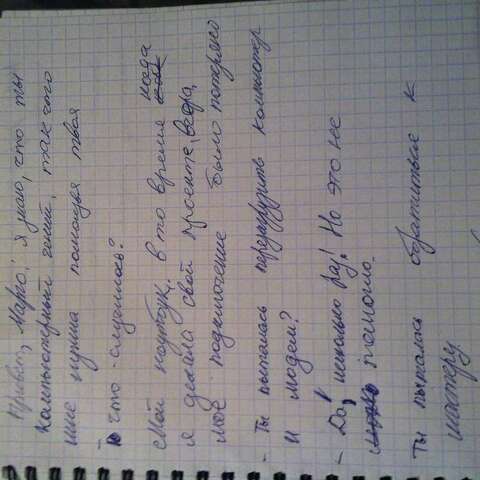 Привет, Марго! Я знаю, что ты
компьютерный гений, так что
мне нужна помощья твоя
То что случилось?
Мой ноутбук. в то время когда
я делала свой проекте, вчера,
моё подключение было потеряно
- Ты пыталась перезагрузить компютер
и модем?
- Да, несколько раз! Но это нее
помогло.
Ты пыталась обратиться к
мастеру